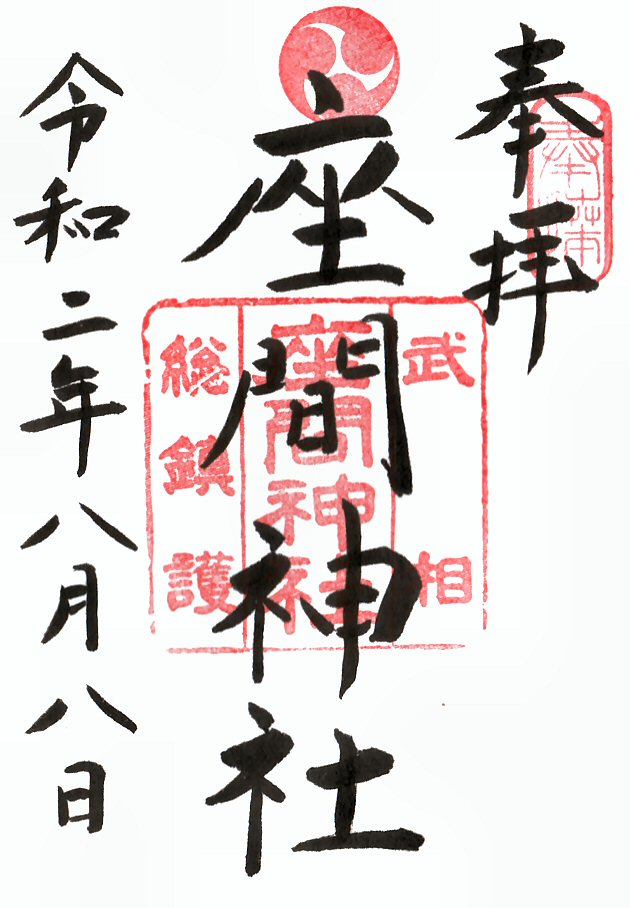 奉拝
奉拝
座間神社
武相
座間神社
総鎮護
令和二年八月八日